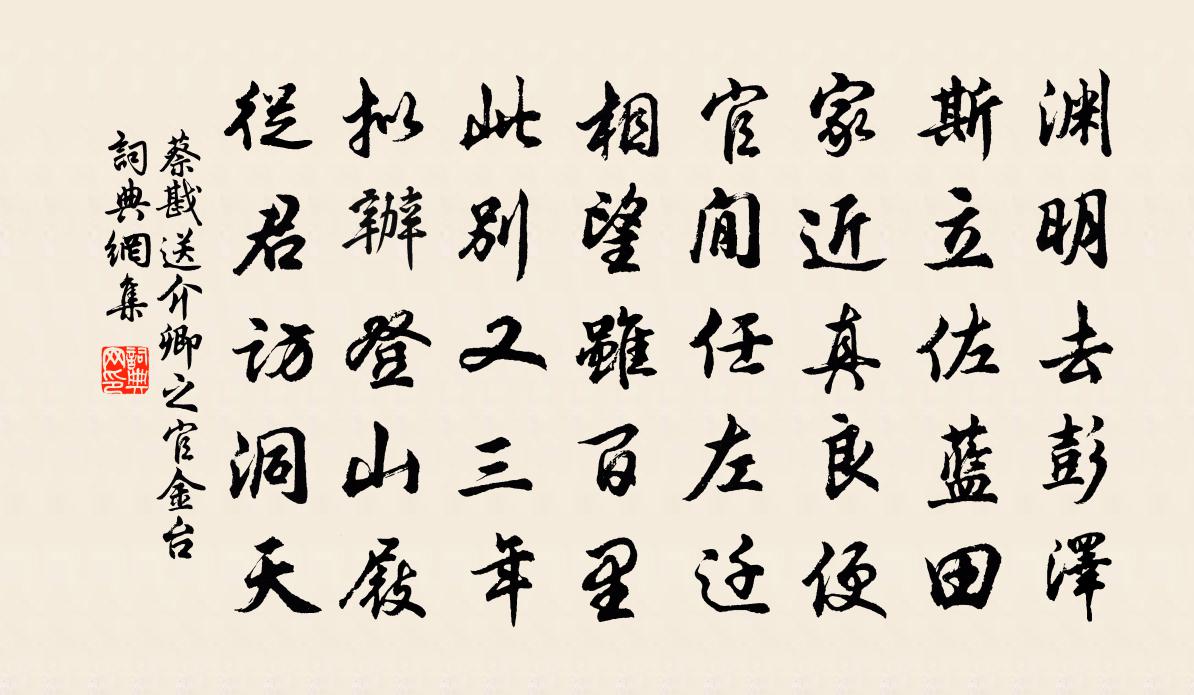 渊明去彭澤
斯立佐藍田
家近真良便
官閒任左迁
相望雖百里
此別又三年
拟辦登山屐
從君訪洞天
蔡戡送介卿之官金台
詞典網集
詞典网印